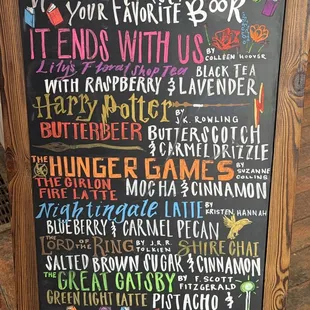 YOUR FAVORITE BOOK
IT ENDS WITH US BY COLLEEN HOOVER
Lily's Floral Shop Tea BLACK TEA
WITH RASPBERRY & LAVENDER
Harry Potter BY J.K. ROWLING
BUTTERBEER BUTTERSCOTCH
& CARMEL DRIZZLE
THE HUNGER GAMES BY SUZANNE COLLINS
THE GIRL ON
FIRE LATTE MOCHA & CINNAMON
Nightingale LATTE BY KRISTEN HANNAH
BLUEBERRY & CARMEL PECAN
THE LORD OF THE RING BY J.R.R. TOLKIEN SHIRE CHAI
SALTED BROWN SUGAR & CINNAMON
THE GREAT GATSBY BY F. SCOTT FITZGERALD
GREEN LIGHT LATTE PISTACHIO &